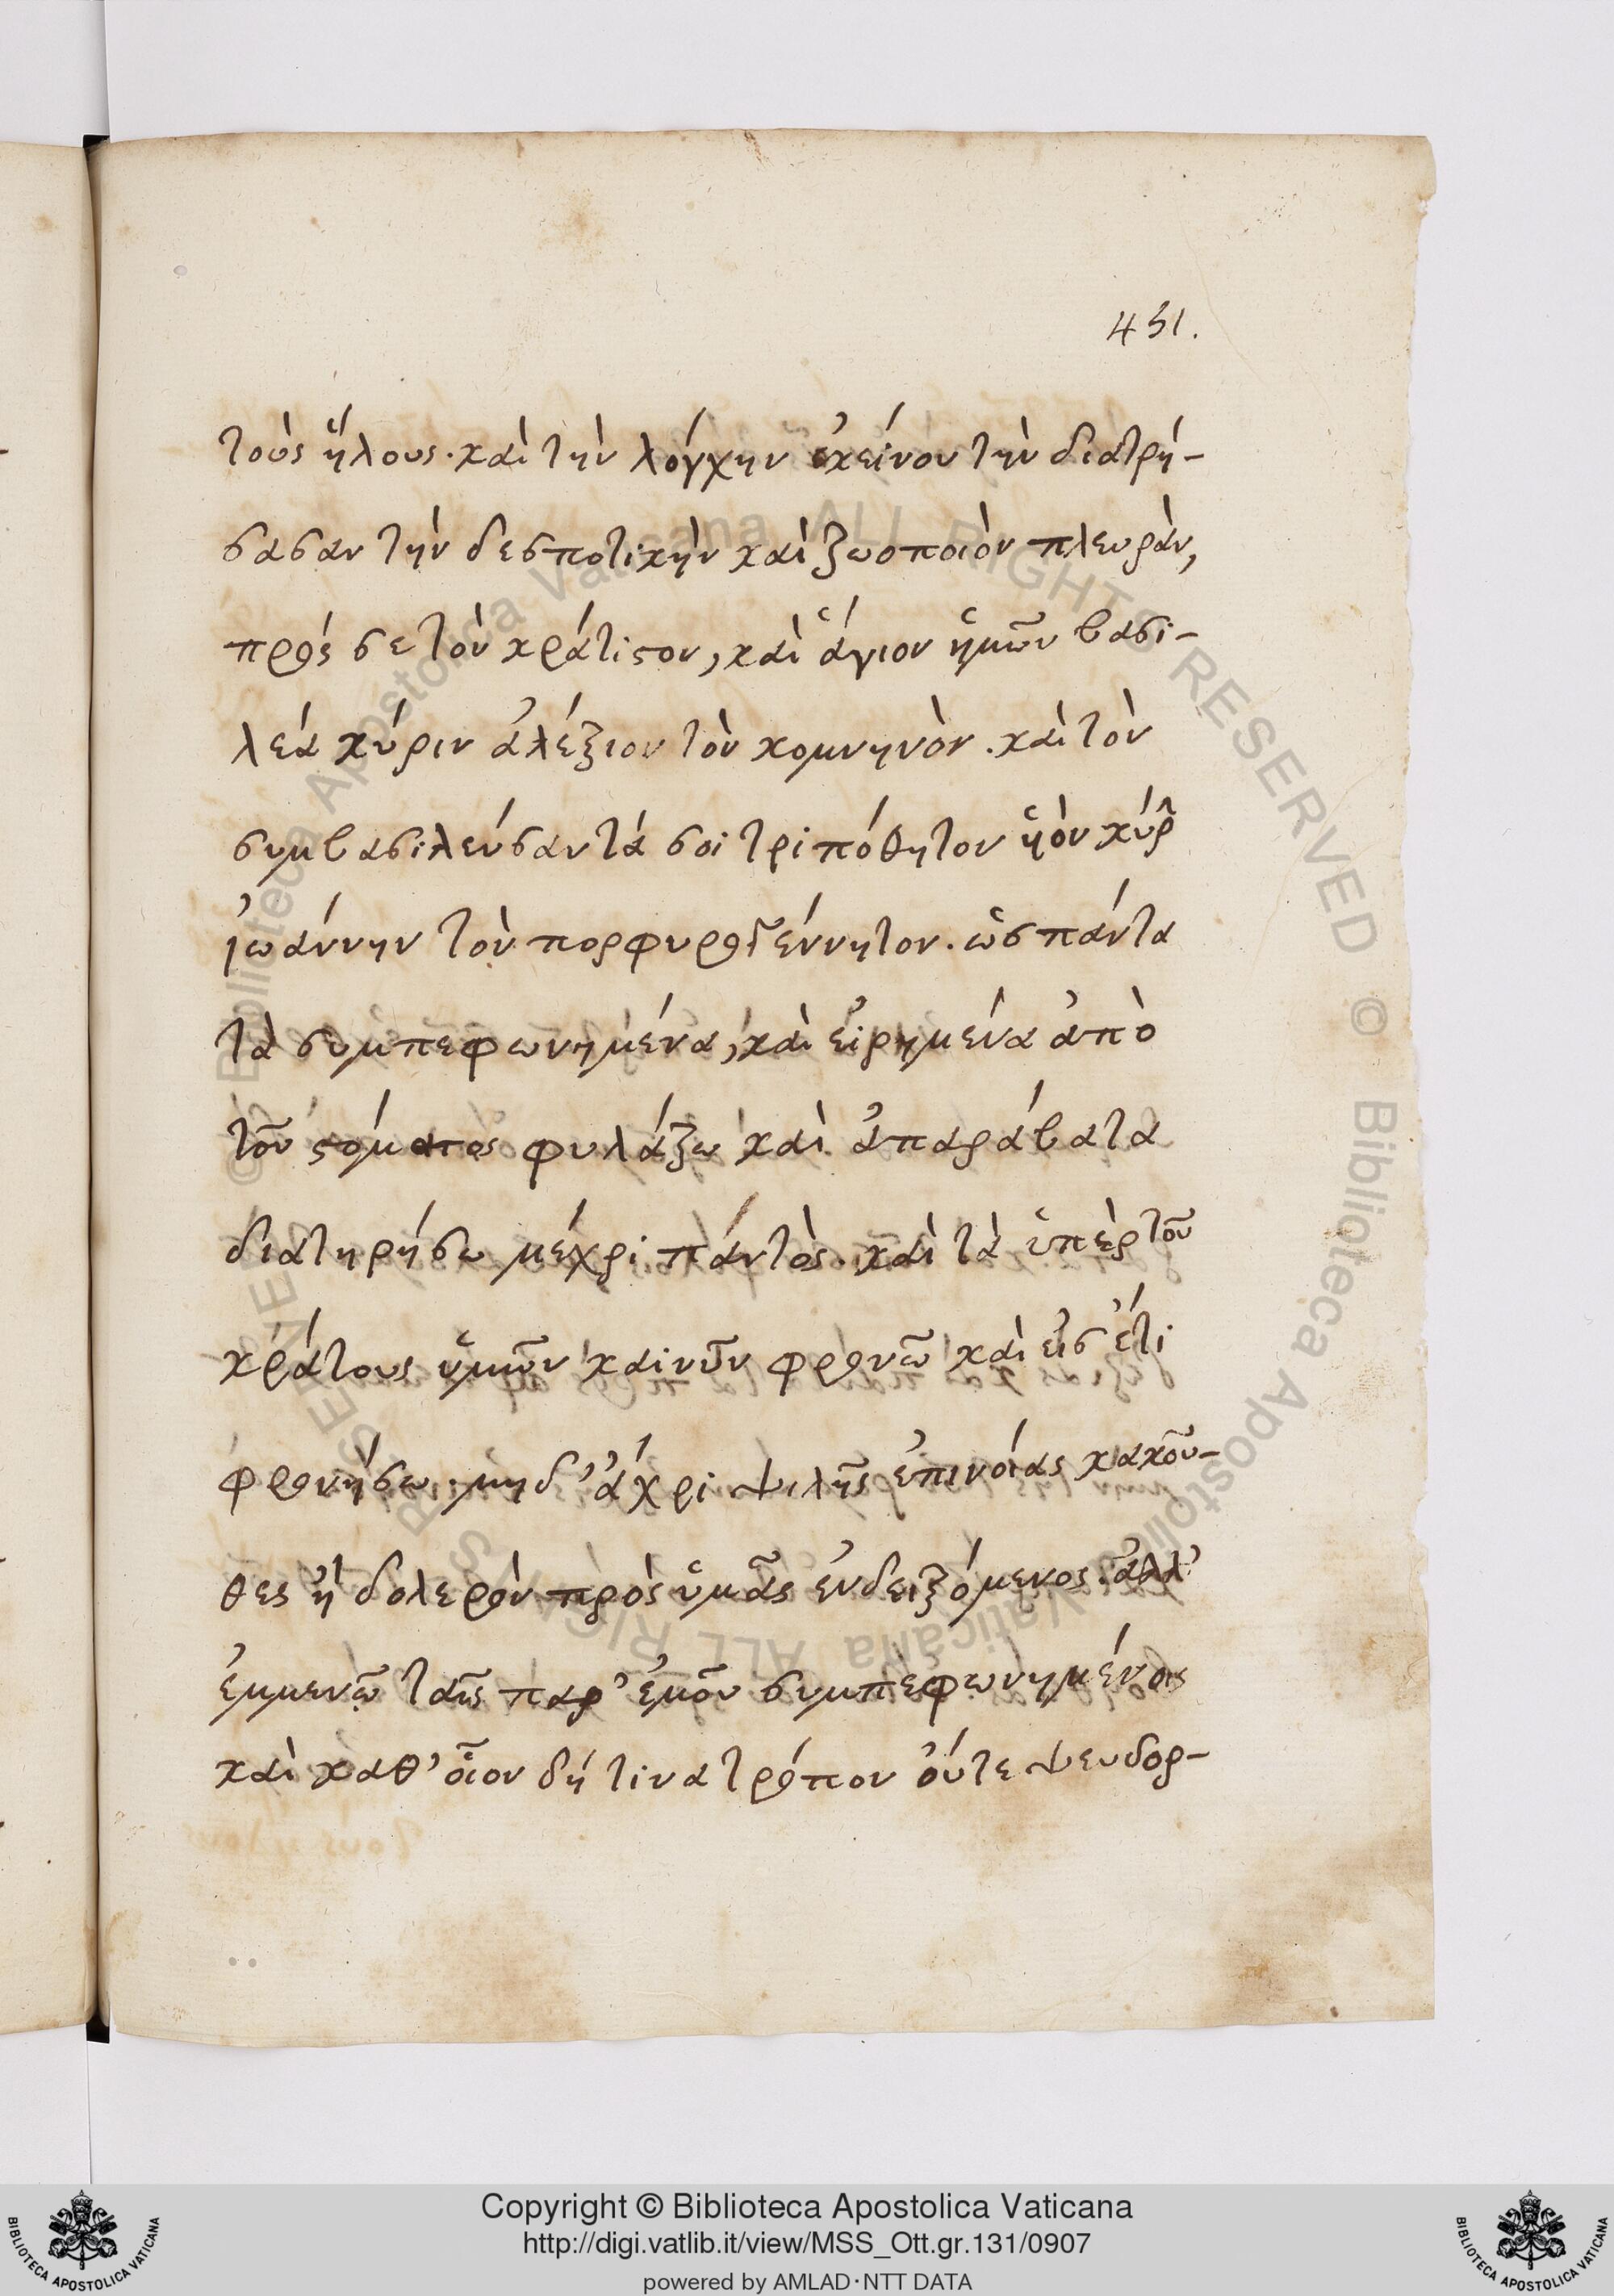 451.
τοὺς ἥλους. καὶ τὴν λόγχην ἐκείνου τὴν διατρή-
σασαν τὴν δεσποτικὴν καὶ ζωοποιὸν πλευρὰν,
πρός σε τὸν κράτιϛον, καὶ ἅγιον ἡμῶν βασι-
λέα κύριν ἀλέξιον τὸν κομνηνὸν. καὶ τὸν
συμβασιλεύσαντά σοι τριπόθητον ὑὸν κύρ
ἰωάννην τὸν πορφυρογέννητον. ὡς πάντα
τὰ συμπεφωνημένα, καὶ εἰρημένα ἀπὸ
τοῦ ϛόματος φυλάξω καὶ ἀπαράβατα
διατηρήσω μέχρι πάντὸς. καὶ τὰ ὑπὲρ τοῦ
κράτους ὑμῶν καὶ νῦν φρονῶ καὶ εἰς ἔτι
φρονήσω. μηδ' ἄχρι ψιλῆς ἐπινοίας κακοῦ-
θες ἢ δολερὸν πρὸς ὑμᾶς ἐνδειξόμενος. ἀλλ'
ἐμμενῶ ταῖς παρ' ἐμοῦ συμπεφωνημένοις
καὶ καθ' οἷον δή τινα τρόπον οὔτε ψευδορ-
Copyright © Biblioteca Apostolica Vaticana
http://digi.vatlib.it/view/MSS_Ott.gr.131/0907
powered by AMLAD·NTT DATA
BIBLIOTECA APOSTOLICA VATICANA
BIBLIOTECA APOSTOLICA VATICANA
© Biblioteca Apostolica Vaticana ALL RIGHTS RESERVED
© Biblioteca Apostolica Vaticana ALL RIGHTS RESERVED